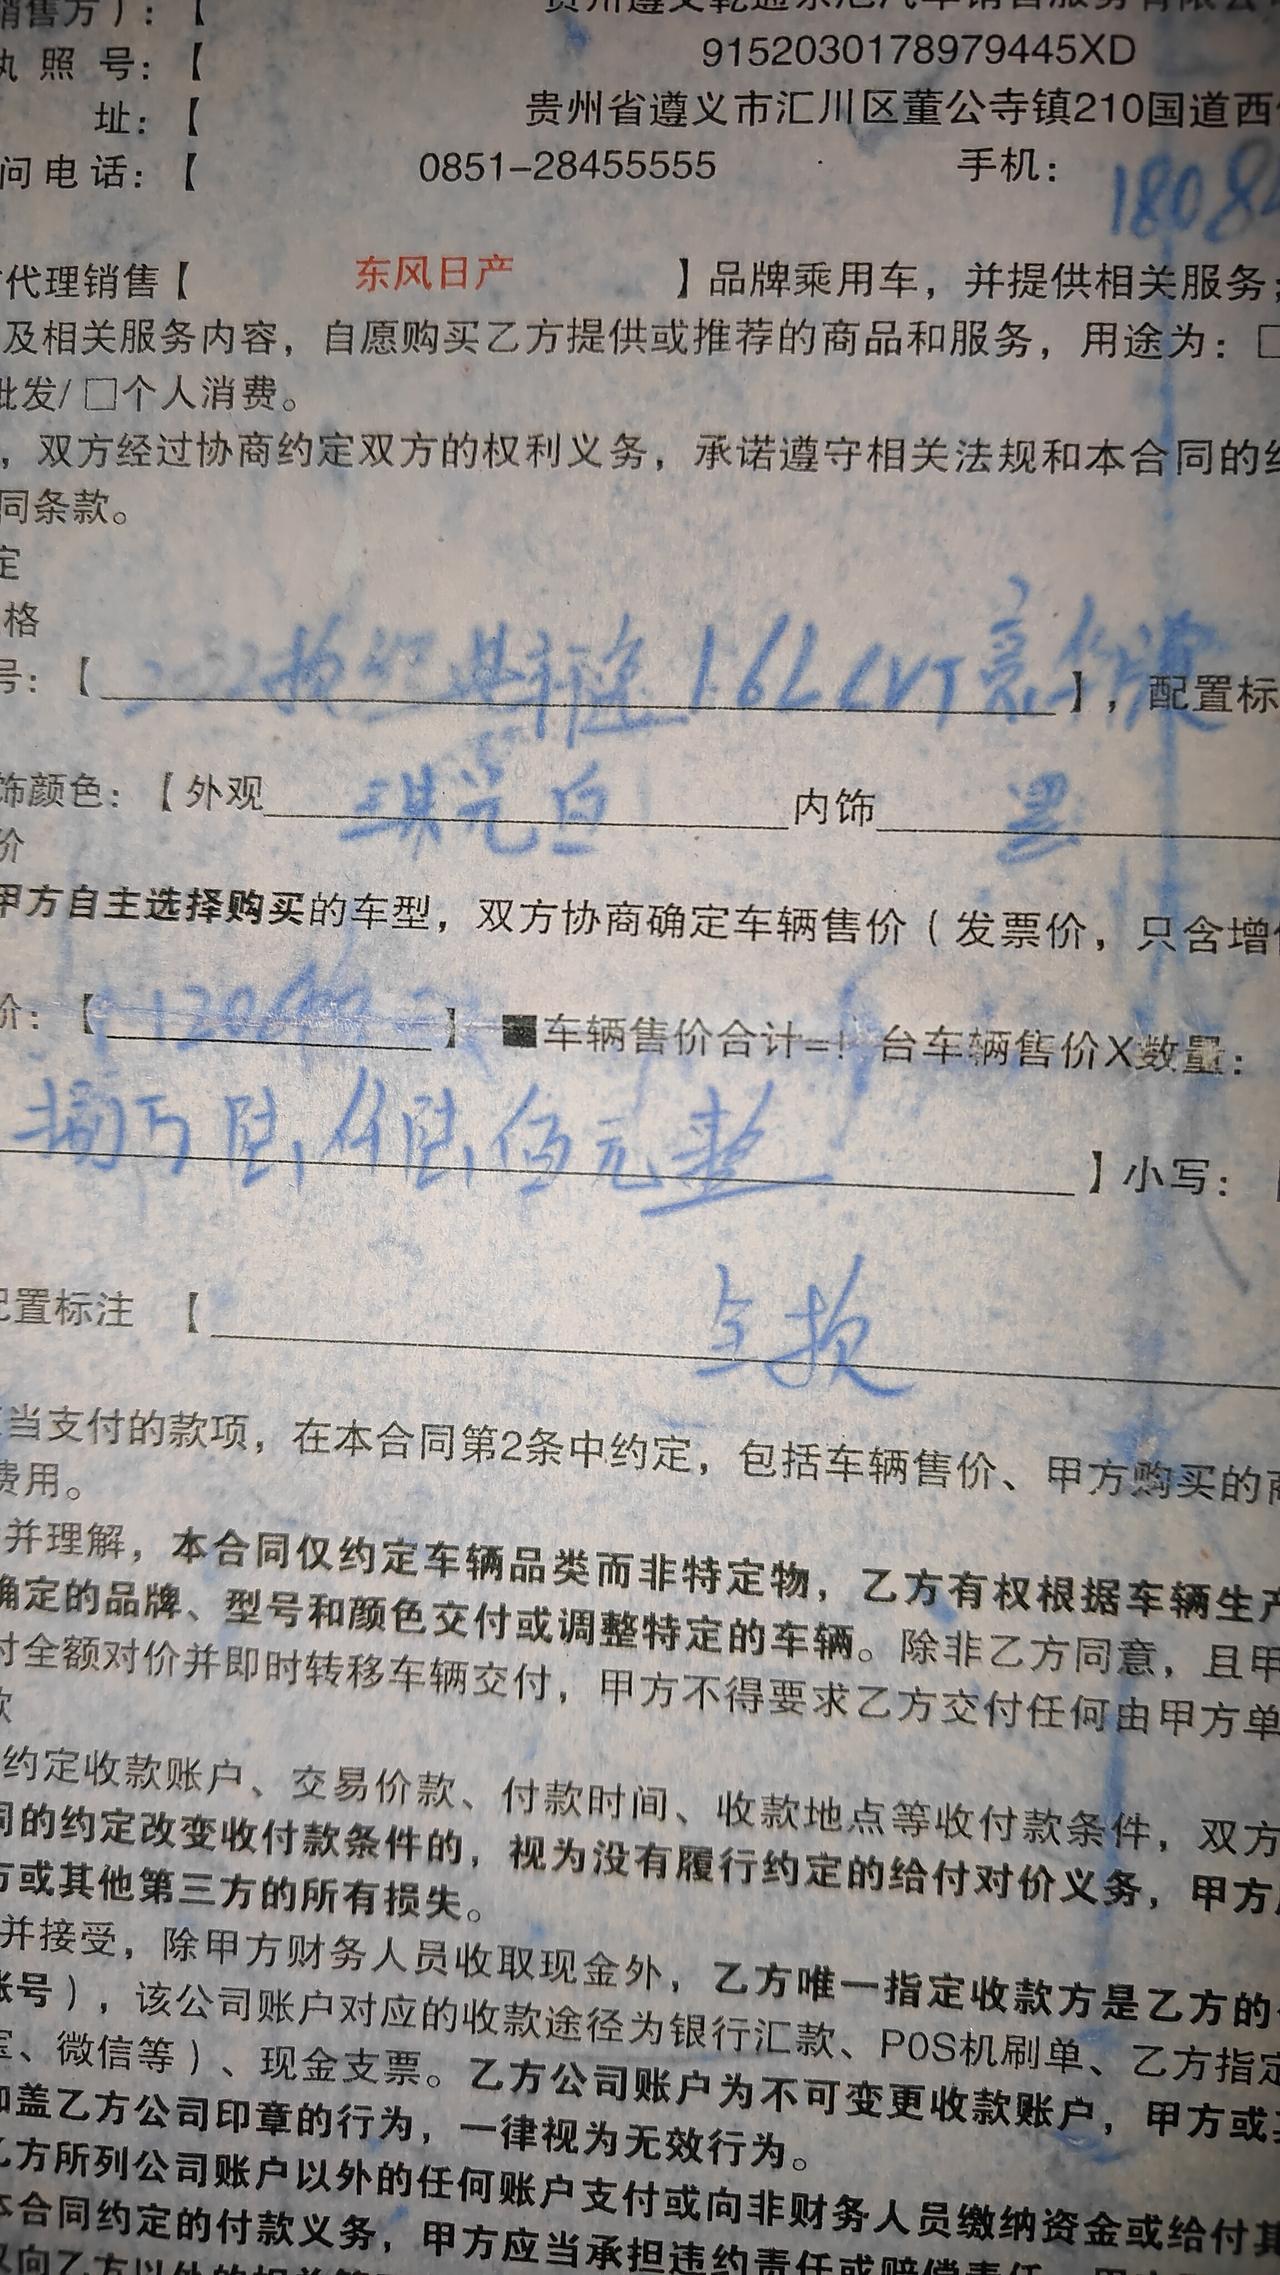 销售方）：【 贵州遵义乾通东旭汽车销售服务有限公
执 照 号：【 9152030178979445XD
址：【 贵州省遵义市汇川区董公寺镇210国道西
问电话：【 0851-28455555 手机： 1808
代理销售【 东风日产 】品牌乘用车，并提供相关服务；
及相关服务内容，自愿购买乙方提供或推荐的商品和服务，用途为：□
批发/ □个人消费。
，双方经过协商约定双方的权利义务，承诺遵守相关法规和本合同的
同条款。
定
格
号：【 1.6L CVT 】，配置标
饰颜色：【外观 珠光白 内饰 黑
价
甲方自主选择购买的车型，双方协商确定车辆售价（发票价，只含增
价：【 】 ■车辆售价合计= 台车辆售价X数量：
万 陆仟陆佰元整 】小写：
配置标注 【 全款
当支付的款项，在本合同第2条中约定，包括车辆售价、甲方购买的商
费用。
并理解，本合同仅约定车辆品类而非特定物，乙方有权根据车辆生产
确定的品牌、型号和颜色交付或调整特定的车辆。除非乙方同意，且甲
付全额对价并即时转移车辆交付，甲方不得要求乙方交付任何由甲方单
款
约定收款账户、交易价款、付款时间、收款地点等收付款条件，双方
同的约定改变收付款条件的，视为没有履行约定的给付对价义务，甲方
方或其他第三方的所有损失。
并接受，除甲方财务人员收取现金外，乙方唯一指定收款方是乙方的
账号），该公司账户对应的收款途径为银行汇款、POS机刷单、乙方指定
宝、微信等）、现金支票。乙方公司账户为不可变更收款账户，甲方或
加盖乙方公司印章的行为，一律视为无效行为。
乙方所列公司账户以外的任何账户支付或向非财务人员缴纳资金或给付其
本合同约定的付款义务，甲方应当承担违约责任或赔偿责任